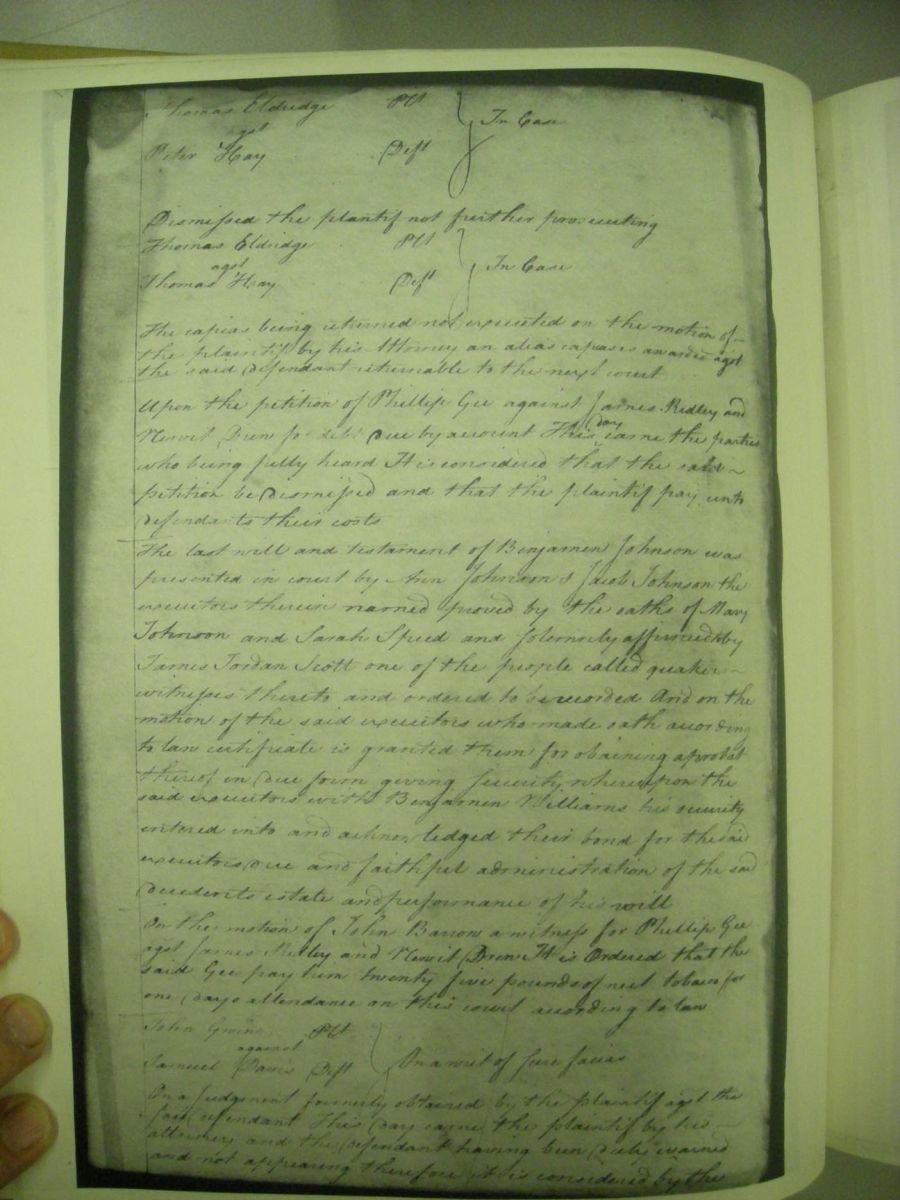 Thomas Eldridge Plt
agst In Case
Peter Hay Deft
Dismissed the plantif not further prosecuting
Thomas Eldridge Plt
agst In Case
Thomas Hay Deft
The capias being returned not executed on the motion of
the plaintif by his Attorney an alias capias is awarded agst
the said defendant returnable to the next court
Upon the petition of Phillip Gee against James Ridley and
day
Newit Drew for debt due by account This came the parties
who being fully heard It is considered that the said
petition be dismissed and that the plaintif pay unto
defendants their costs
The last will and testament of Benjamen Johnson was
presented in court by Ann Johnson & Jacob Johnson the
executors therein named proved by the oaths of Mary
Johnson and Sarah Speed and solemnly affirmed by
James Jordan Scott one of the people called quaker
witnesses thereto and ordered to be recorded And on the
motion of the said executors who made oath according
to law certificate is granted them for obtaining a probat
thereof in due form giving security whereupon the
said executors with Benjamen Williams his security
entered into and acknowledged their bond for the said
executors due and faithful administration of the said
decedents estate and performance of his will
On the motion of John Barrow a witness for Phillip Gee
agst James Ridley and Newit Drew It is Ordered that the
said Gee pay him twenty five pounds of neet tobacco for
one days attendance on this court according to law
John Gwin Plt
against
Samuel Davis Deft On a writ of scire facias
On a Judgment formerly obtained by the plaintif agst the
said defendant This day came the plaintif by his
attorney and the defendant having been duely warned
and not appearing therefore it is considered by the